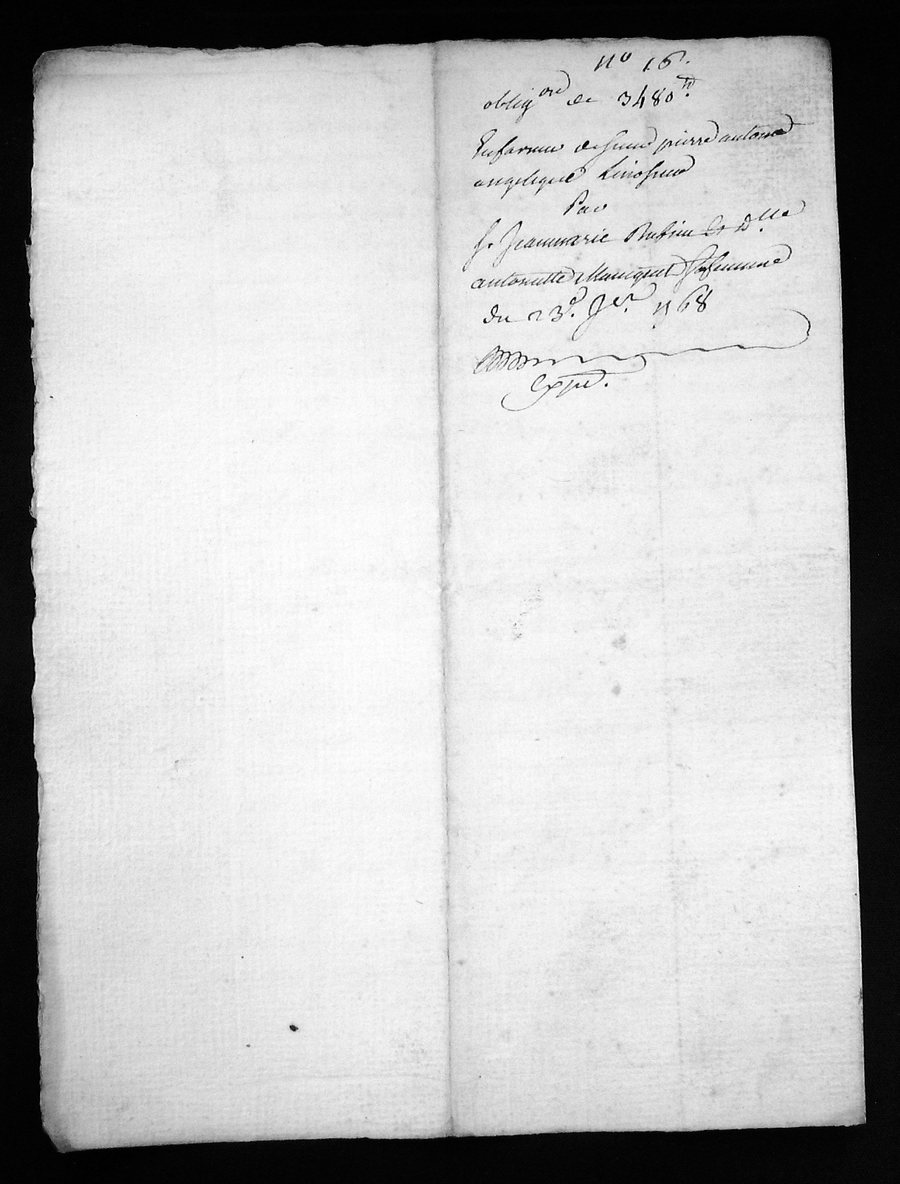 no 16.
oblig.on de 3480 tt.
En faveur de sieur pierre antoine
angelique Linossier
Par
sr. Jeanmarie Rubin et dlle
antoinette Maniquet sa femme
du 23e. Jer. 1768
Expé.